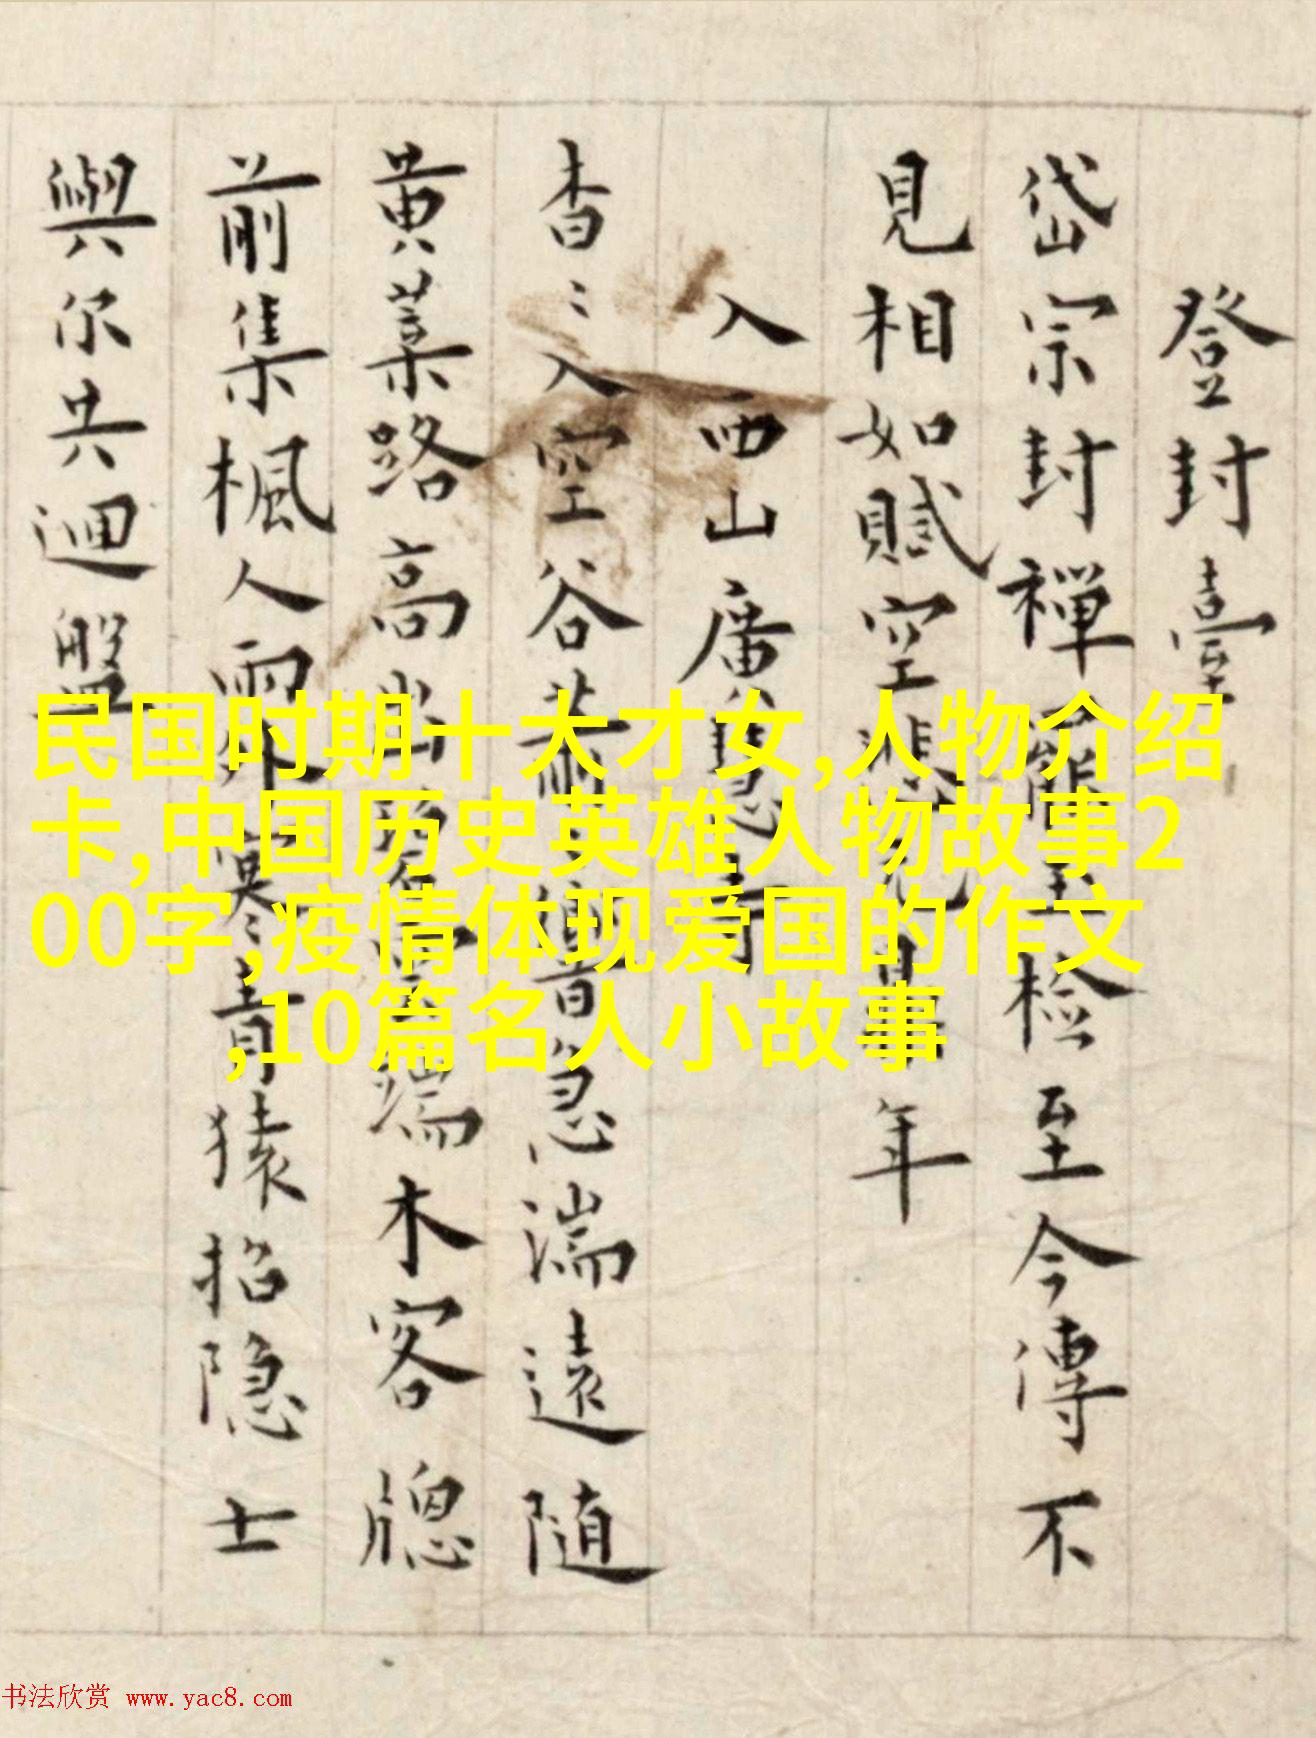 登封臺
岱宗封禪 至檢至今傳不
見相如賦空悲 見 年
入西山廣慧寺
杳〻入空谷蕭 響昏急湍遠隨
黄葉路高出 端木客牕
前集楓人雨外 嘆〻青猿招隐士
與尔共迴盤
民国时期十大才女,人物介绍
卡,中国历史英雄人物故事2
00字,疫情体现爱国的作文
,10篇名人小故事
书法欣赏 www.yac8.com